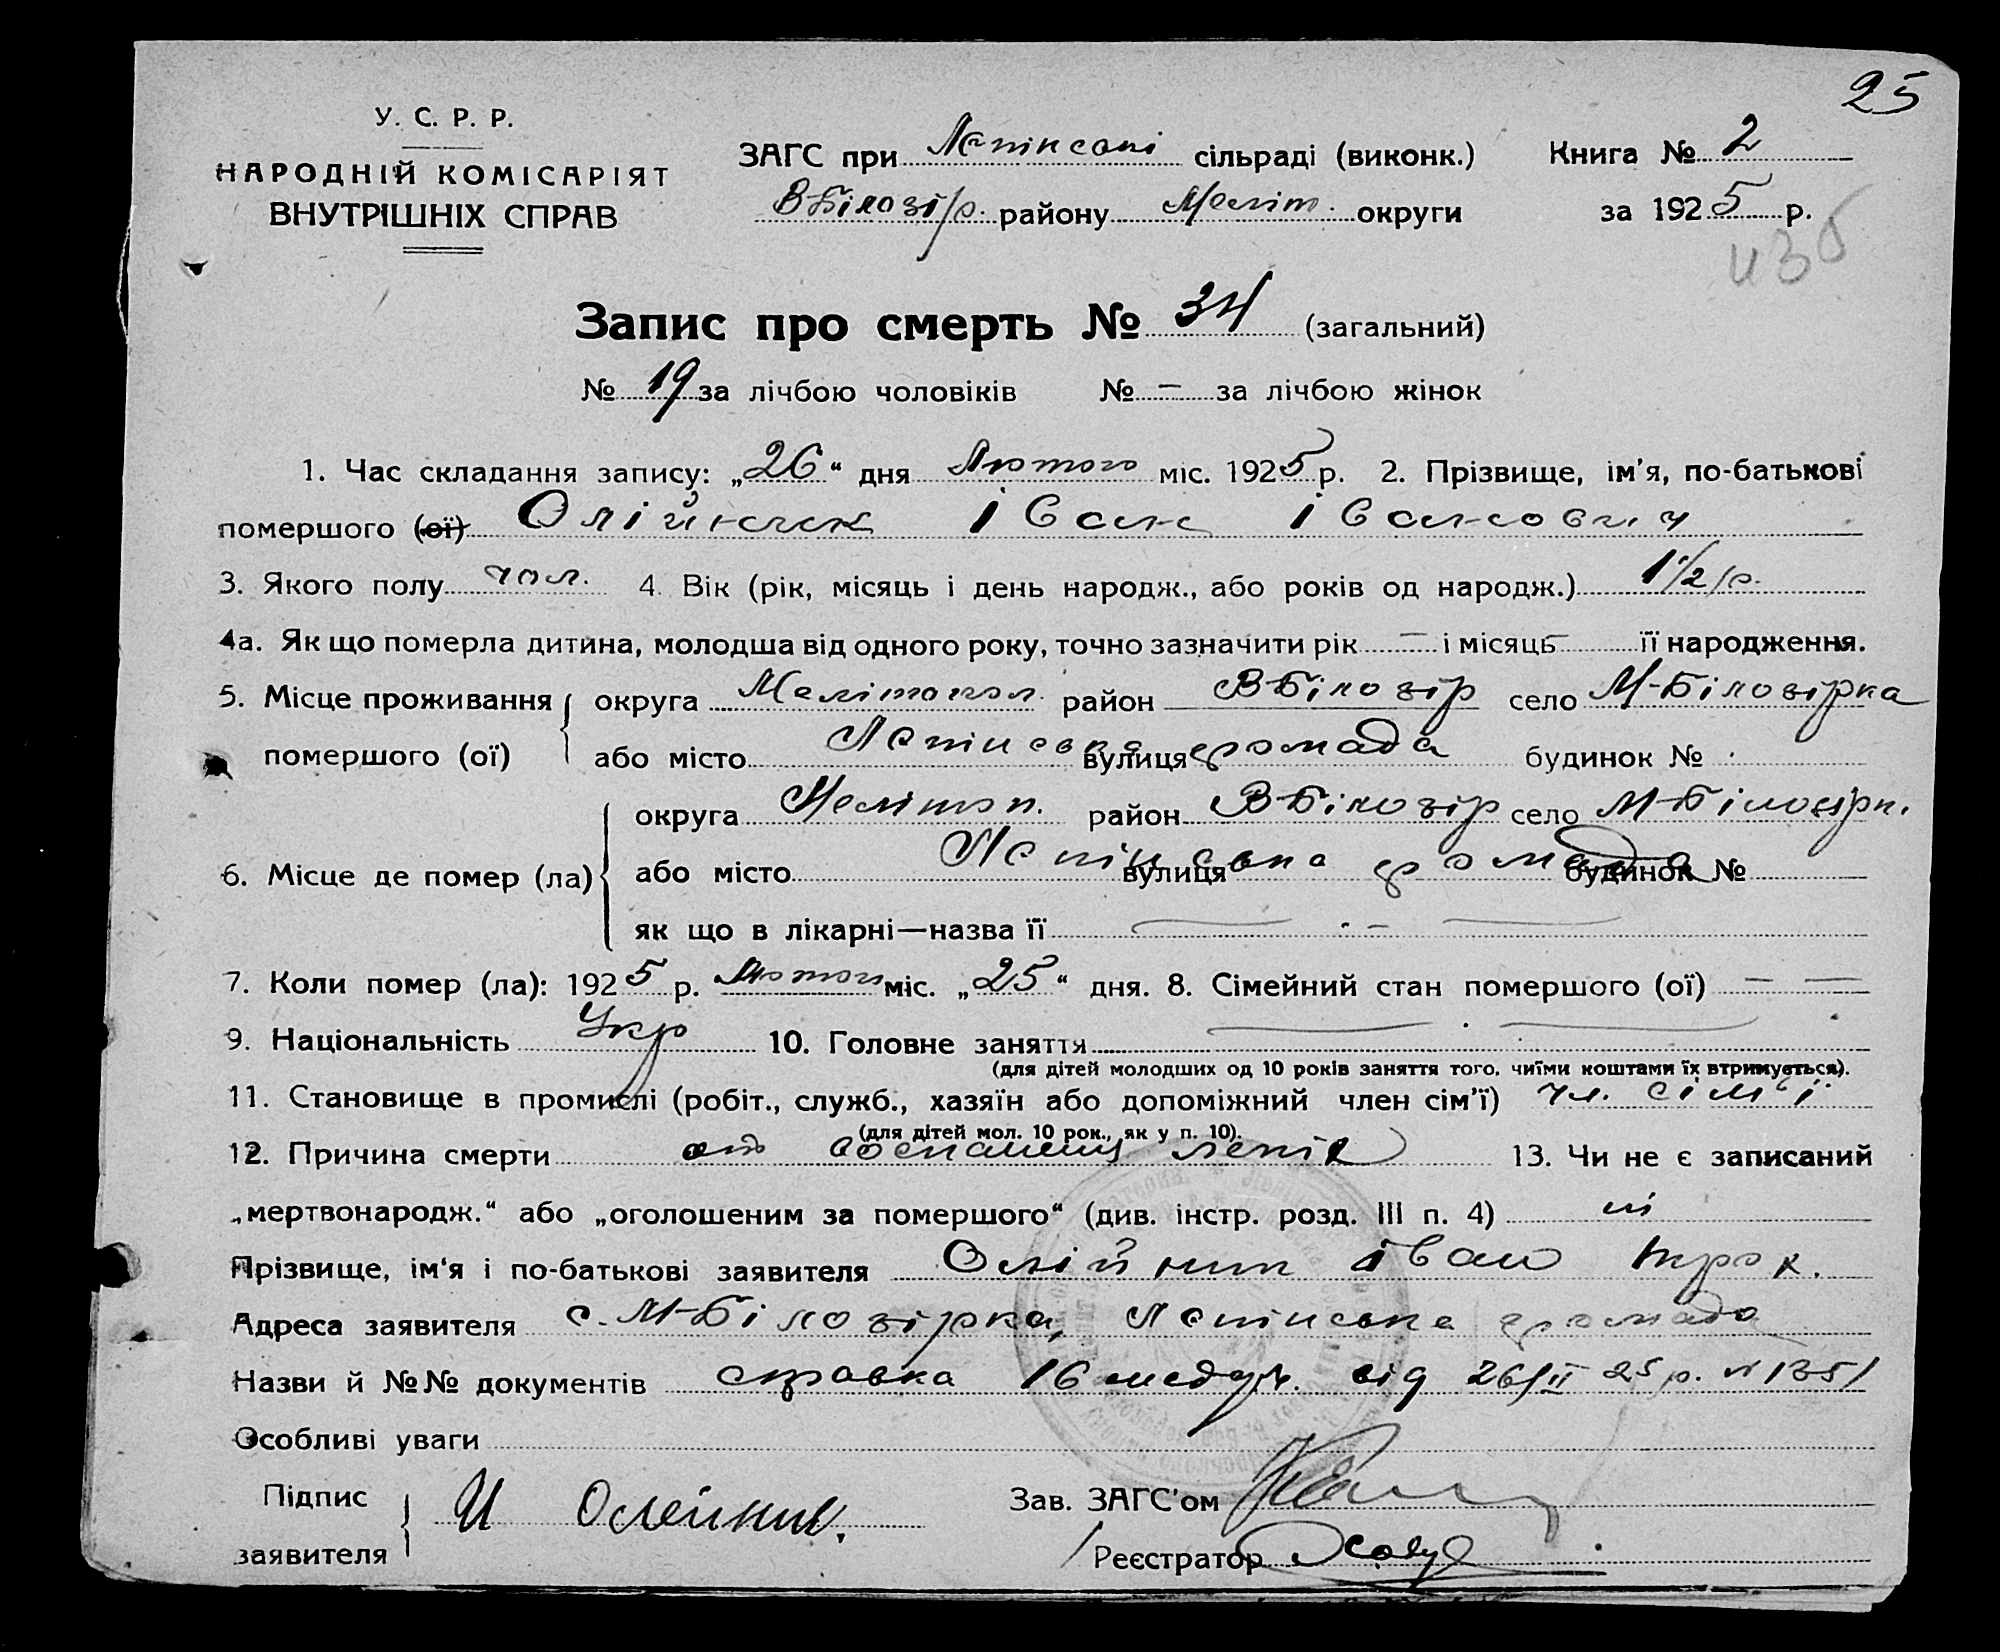 25
У. С. Р. Р.
НАРОДНІЙ КОМІСАРІЯТ
ВНУТРІШНІХ СПРАВ
ЗАГС при сільраді (виконк.) Книга № 2
В-Білозір. району Меліт. округи за 1925 р.
Запис про смерть № 34 (загальний)
№ 19 за лічбою чоловіків № — за лічбою жінок
1. Час складання запису: „26“ дня Лютого міс. 1925 р. 2. Прізвище, ім'я, по-батькові
помершого (ої) Олійник Іван Іванович
3. Якого полу чол. 4. Вік (рік, місяць і день народж., або років од народж.) 1 1/2 р.
4а. Як що померла дитина, молодша від одного року, точно зазначити рік — і місяць — її народження.
5. Місце проживання округа Мелітопол. район В-Білозір село М-Білозірка
помершого (ої) або місто Лепінська вулиця громада будинок №
6. Місце де помер (ла) округа Мелітоп. район В-Білозір село М-Білозірк.
або місто Лепінська вулиця громада будинок №
як що в лікарні—назва її — . —
7. Коли помер (ла): 1925 р. Лютого міс. „25“ дня. 8. Сімейний стан помершого (ої) — —
9. Національність Укр 10. Головне заняття — . —
(для дітей молодших од 10 років заняття того, чиїми коштами їх втримується).
11. Становище в промислі (робіт., служб., хазяїн або допоміжний член сім'ї) чл. сім'ї
(для дітей мол. 10 рок., як у п. 10).
12. Причина смерти 13. Чи не є записаний
„мертвонародж.“ або „оголошеним за помершого“ (див. інстр. розд. III п. 4) ні
Прізвище, ім'я і по-батькові заявителя Олійник Іван
Адреса заявителя с. М-Білозірка, Лепінська громада
Назви й №№ документів справка 16 від 26/II 25 р. № 1351
Особливі уваги
Підпис Зав. ЗАГС'ом
И Олейник.
заявителя Реєстратор